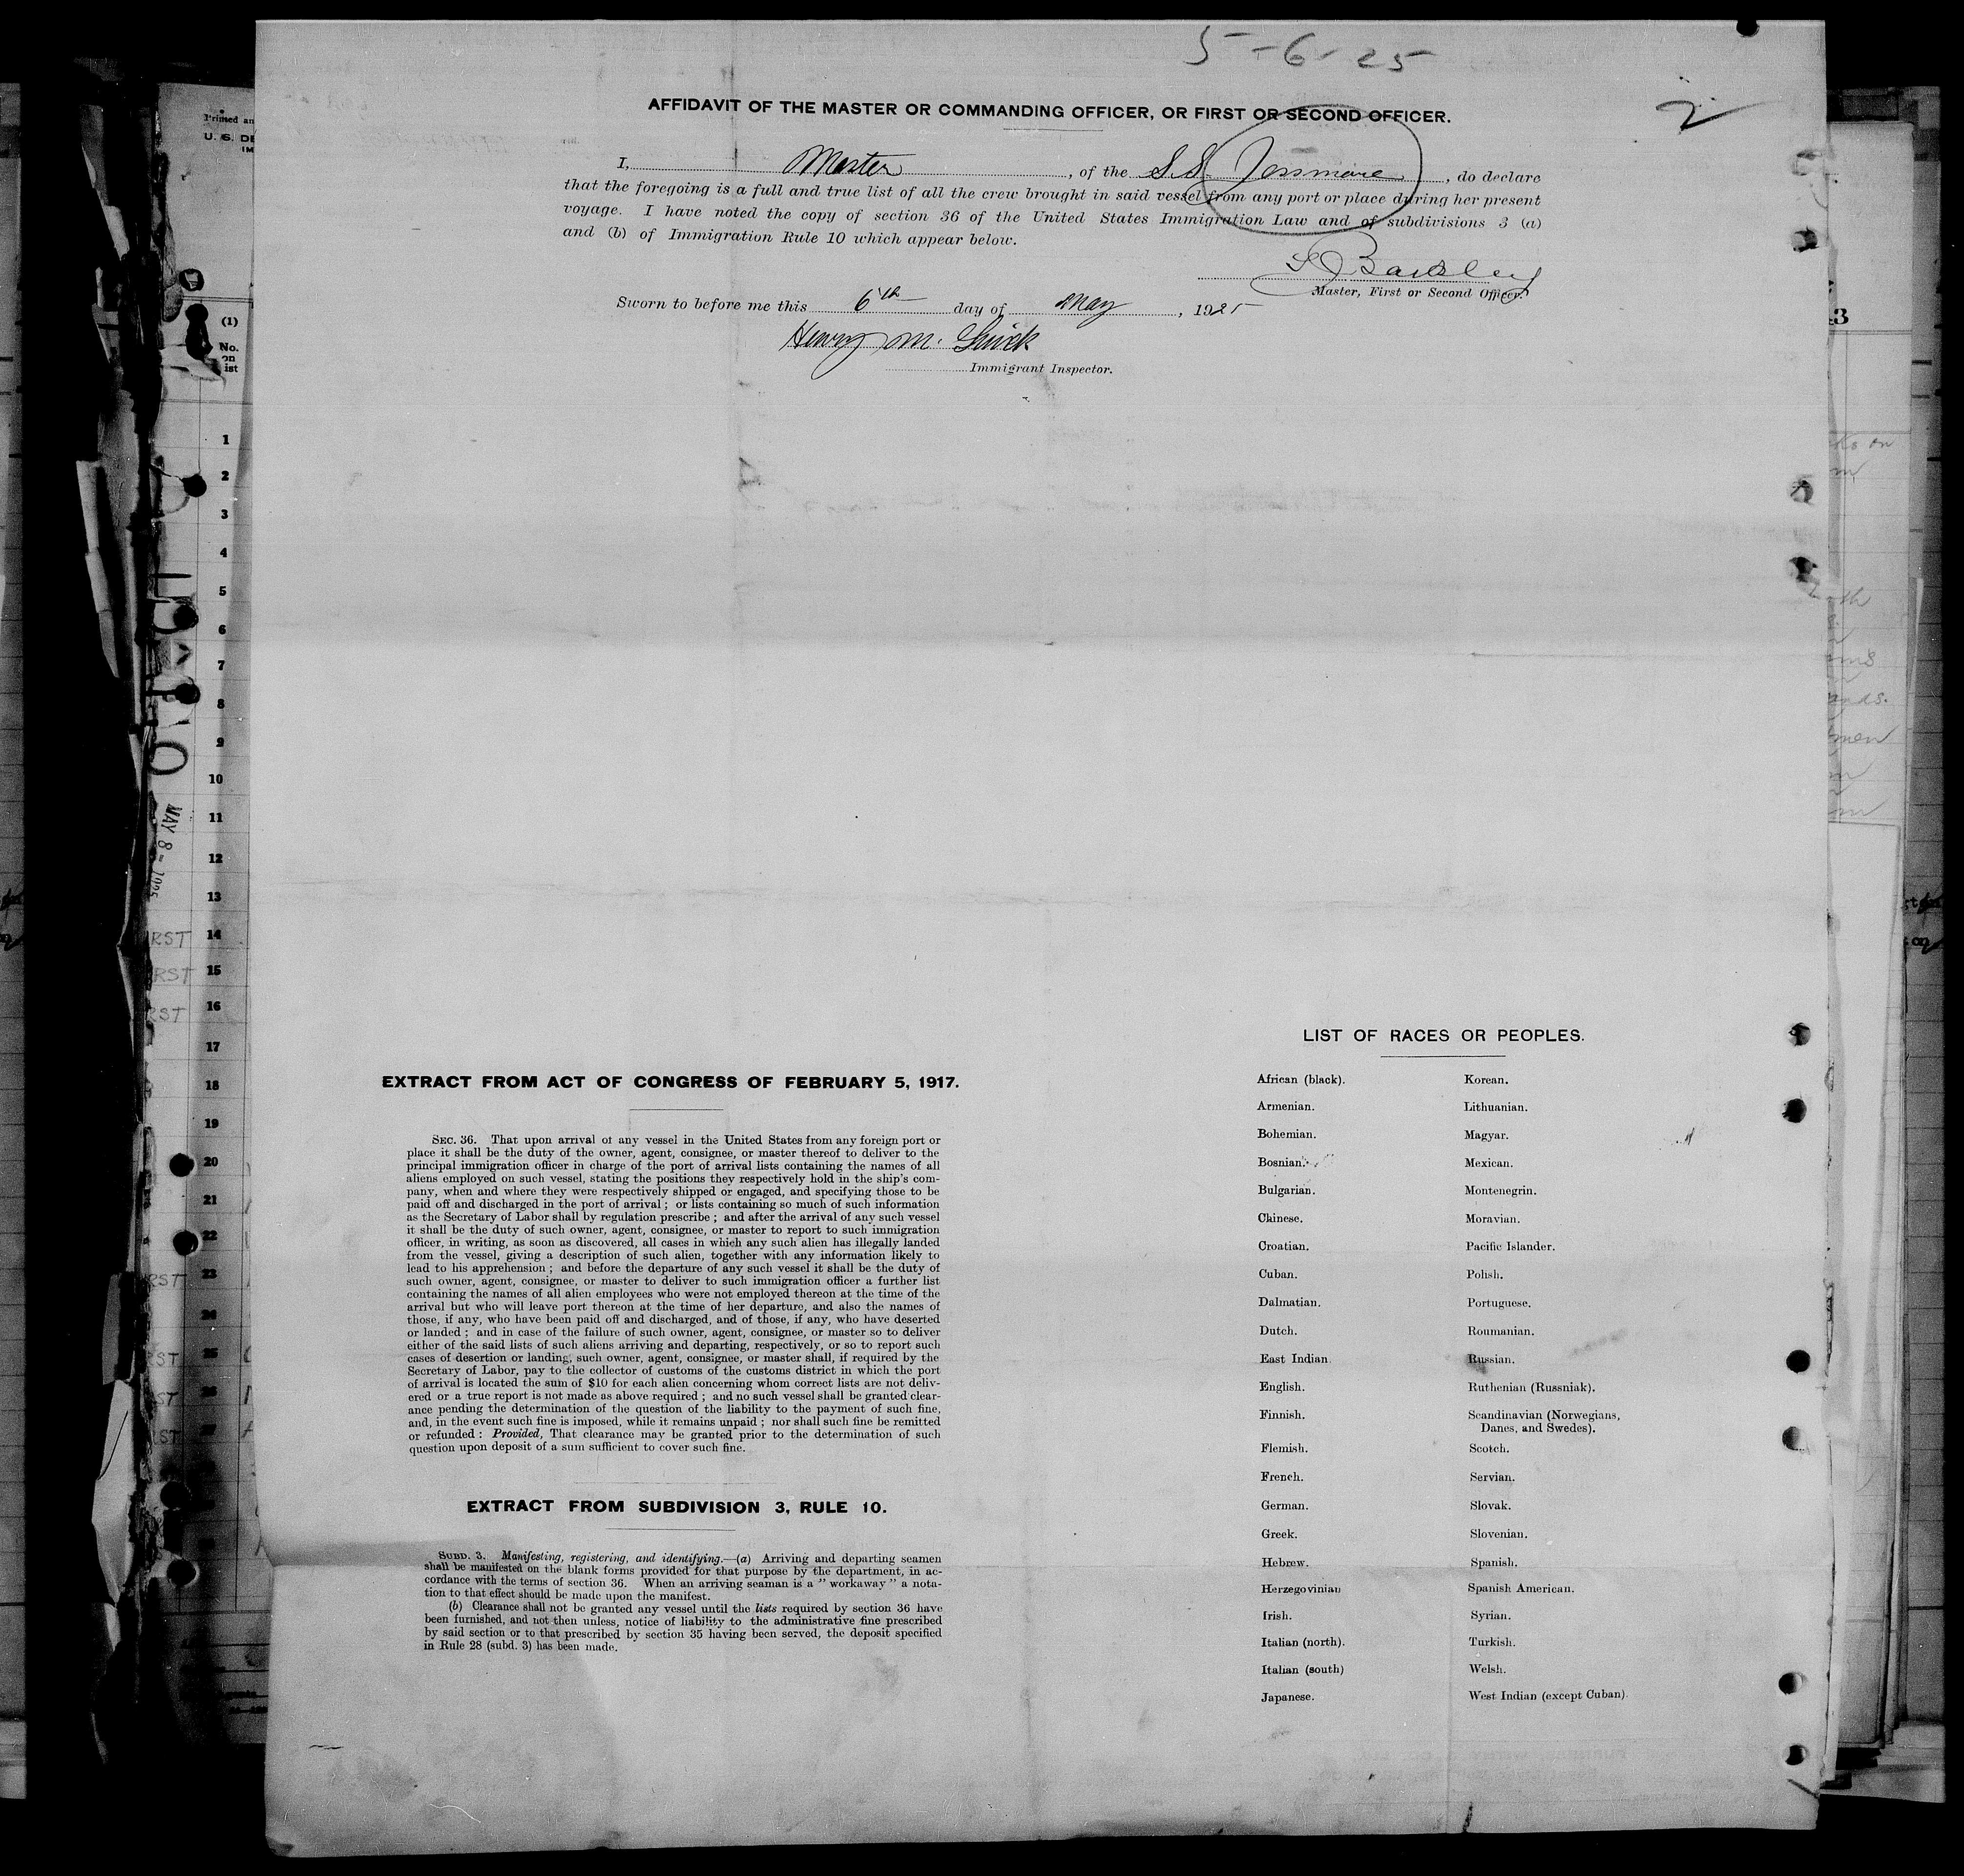 5-6-25
2
AFFIDAVIT OF THE MASTER OR COMMANDING OFFICER, OR FIRST OR SECOND OFFICER.
I, Master, of the S.S. Jessmore, do declare
that the foregoing is a full and true list of all the crew brought in said vessel from any port or place during her present
voyage. I have noted the copy of section 36 of the United States Immigration Law and of subdivisions 3 (a)
and (b) of Immigration Rule 10 which appear below.
Master, First or Second Officer.
Sworn to before me this 6th day of May, 1925
Henry M.
Immigrant Inspector.
EXTRACT FROM ACT OF CONGRESS OF FEBRUARY 5, 1917.
SEC. 36. That upon arrival of any vessel in the United States from any foreign port or
place it shall be the duty of the owner, agent, consignee, or master thereof to deliver to the
principal immigration officer in charge of the port of arrival lists containing the names of all
aliens employed on such vessel, stating the positions they respectively hold in the ship's com-
pany, when and where they were respectively shipped or engaged, and specifying those to be
paid off and discharged in the port of arrival; or lists containing so much of such information
as the Secretary of Labor shall by regulation prescribe; and after the arrival of any such vessel
it shall be the duty of such owner, agent, consignee, or master to report to such immigration
officer, in writing, as soon as discovered, all cases in which any such alien has illegally landed
from the vessel, giving a description of such alien, together with any information likely to
lead to his apprehension; and before the departure of any such vessel it shall be the duty of
such owner, agent, consignee, or master to deliver to such immigration officer a further list
containing the names of all alien employees who were not employed thereon at the time of the
arrival but who will leave port thereon at the time of her departure, and also the names of
those, if any, who have been paid off and discharged, and of those, if any, who have deserted
or landed; and in case of the failure of such owner, agent, consignee, or master so to deliver
either of the said lists of such aliens arriving and departing, respectively, or so to report such
cases of desertion or landing, such owner, agent, consignee, or master shall, if required by the
Secretary of Labor, pay to the collector of customs of the customs district in which the port
of arrival is located the sum of $10 for each alien concerning whom correct lists are not deliv-
ered or a true report is not made as above required; and no such vessel shall be granted clear-
ance pending the determination of the question of the liability to the payment of such fine,
and, in the event such fine is imposed, while it remains unpaid; nor shall such fine be remitted
or refunded: Provided, That clearance may be granted prior to the determination of such
question upon deposit of a sum sufficient to cover such fine.
EXTRACT FROM SUBDIVISION 3, RULE 10.
SUBD. 3. Manifesting, registering, and identifying.—(a) Arriving and departing seamen
shall be manifested on the blank forms provided for that purpose by the department, in ac-
cordance with the terms of section 36. When an arriving seaman is a "workaway" a nota-
tion to that effect should be made upon the manifest.
(b) Clearance shall not be granted any vessel until the lists required by section 36 have
been furnished, and not then unless, notice of liability to the administrative fine prescribed
by said section or to that prescribed by section 35 having been served, the deposit specified
in Rule 28 (subd. 3) has been made.
LIST OF RACES OR PEOPLES.
African (black).
Armenian.
Bohemian.
Bosnian.
Bulgarian.
Chinese.
Croatian.
Cuban.
Dalmatian.
Dutch.
East Indian
English.
Finnish.
Flemish.
French.
German.
Greek.
Hebrew.
Herzegovinian
Irish.
Italian (north).
Italian (south)
Japanese.
Korean.
Lithuanian.
Magyar.
Mexican.
Montenegrin.
Moravian.
Pacific Islander.
Polish.
Portuguese.
Roumanian.
Russian.
Ruthenian (Russniak).
Scandinavian (Norwegians,
Danes, and Swedes).
Scotch.
Servian.
Slovak.
Slovenian.
Spanish.
Spanish American.
Syrian.
Turkish.
Welsh.
West Indian (except Cuban)
Printed an
U. S. DE
IM
(1)
No.
on
ist
1
2
3
4
5
6
7
8
9
10
11
12
13
14
15
16
17
18
19
20
21
22
23
24
25
26
27
MAY 8 - 1925
RST
RST
RST
RST